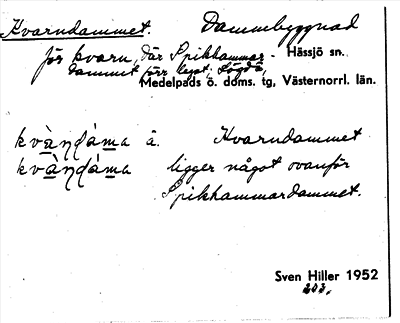 Kvarndammet. Dammbyggnad
för kvarn, där Spikhammar- Hässjö sn.
dammet förr legat; Sögdö,
Medelpads ö. doms. tg, Västernorrl. län.
kvàn̥dáma ä. Kvarndammet
kvàn̥dáma ligger något ovanför
Spikhammardammet.
Sven Hiller 1952
203.